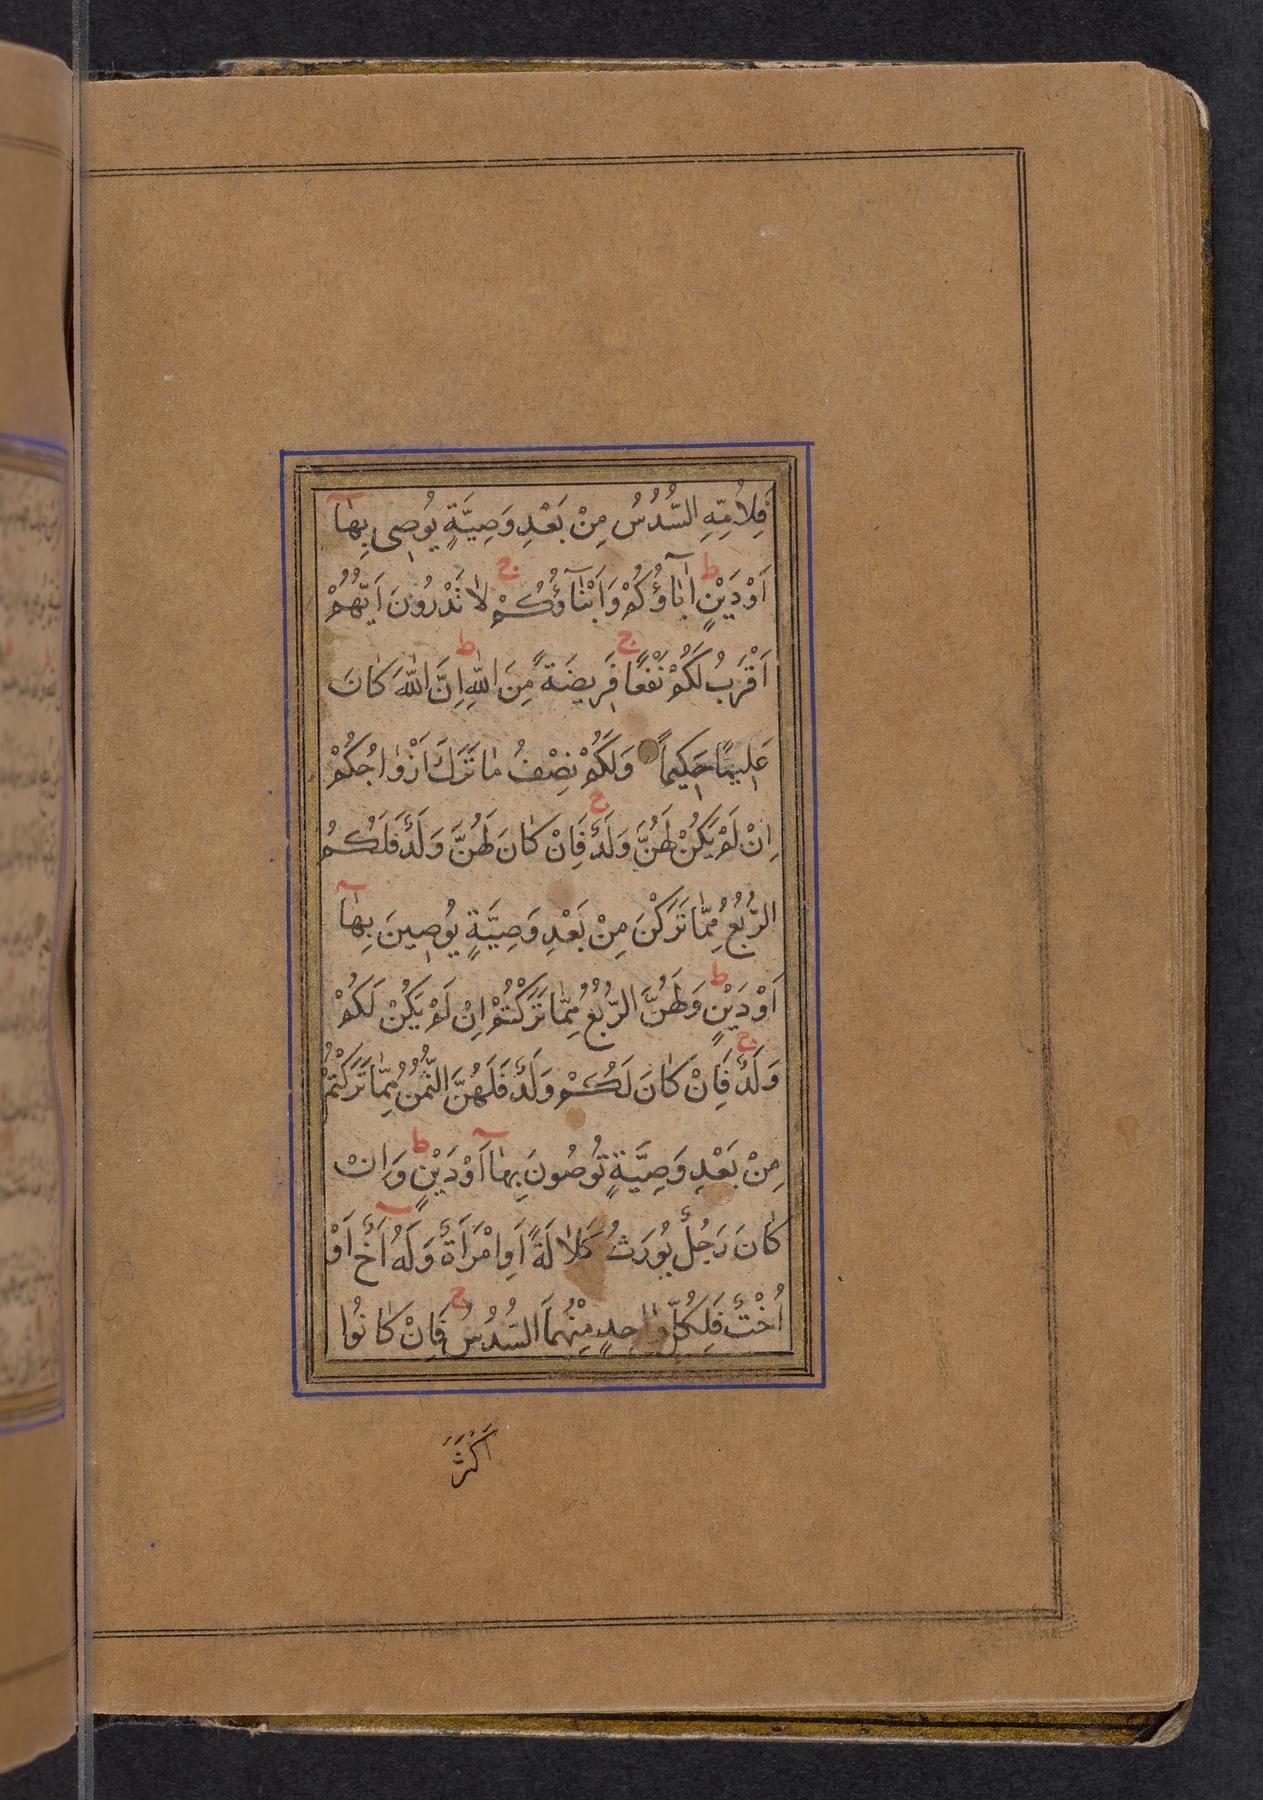 فَلِاُمِّهِ السُّدُسُ مِنْ بَعْدِ وَصِيَّةٍ يُوصٖى بِهٰٓا
اَوْ دَيْنٍ ط اٰبٰٓاؤُكُمْ وَاَبْنٰٓاؤُكُمْ ج لٰا تَدْرُونَ اَيُّهُمْ
اَقْرَبُ لَكُمْ نَفْعًا ج فَرٖيضَةً مِنَ اللّٰهِ ط اِنَّ اللّٰهَ كٰانَ
عَلٖيمًا حَكٖيمًا وَلَكُمْ نِصْفُ مٰا تَرَكَ اَزْوٰاجُكُمْ
اِنْ لَمْ يَكُنْ لَهُنَّ وَلَدٌ ج فَاِنْ كٰانَ لَهُنَّ وَلَدٌ فَلَكُمُ
الرُّبُعُ مِمّٰا تَرَكْنَ مِنْ بَعْدِ وَصِيَّةٍ يُوصٖينَ بِهٰٓا
اَوْ دَيْنٍ ط وَلَهُنَّ الرُّبُعُ مِمّٰا تَرَكْتُمْ اِنْ لَمْ يَكُنْ لَكُمْ
وَلَدٌ ج فَاِنْ كٰانَ لَكُمْ وَلَدٌ فَلَهُنَّ الثُّمُنُ مِمّٰا تَرَكْتُمْ
مِنْ بَعْدِ وَصِيَّةٍ تُوصُونَ بِهٰٓا اَوْ دَيْنٍ ط وَاِنْ
كٰانَ رَجُلٌ يُورَثُ كَلٰالَةً اَوِ امْرَاَةٌ وَلَهُٓ اَخٌ اَوْ
اُخْتٌ فَلِكُلِّ وٰاحِدٍ مِنْهُمَا السُّدُسُ ج فَاِنْ كٰانُوا
اَكْثَرَ